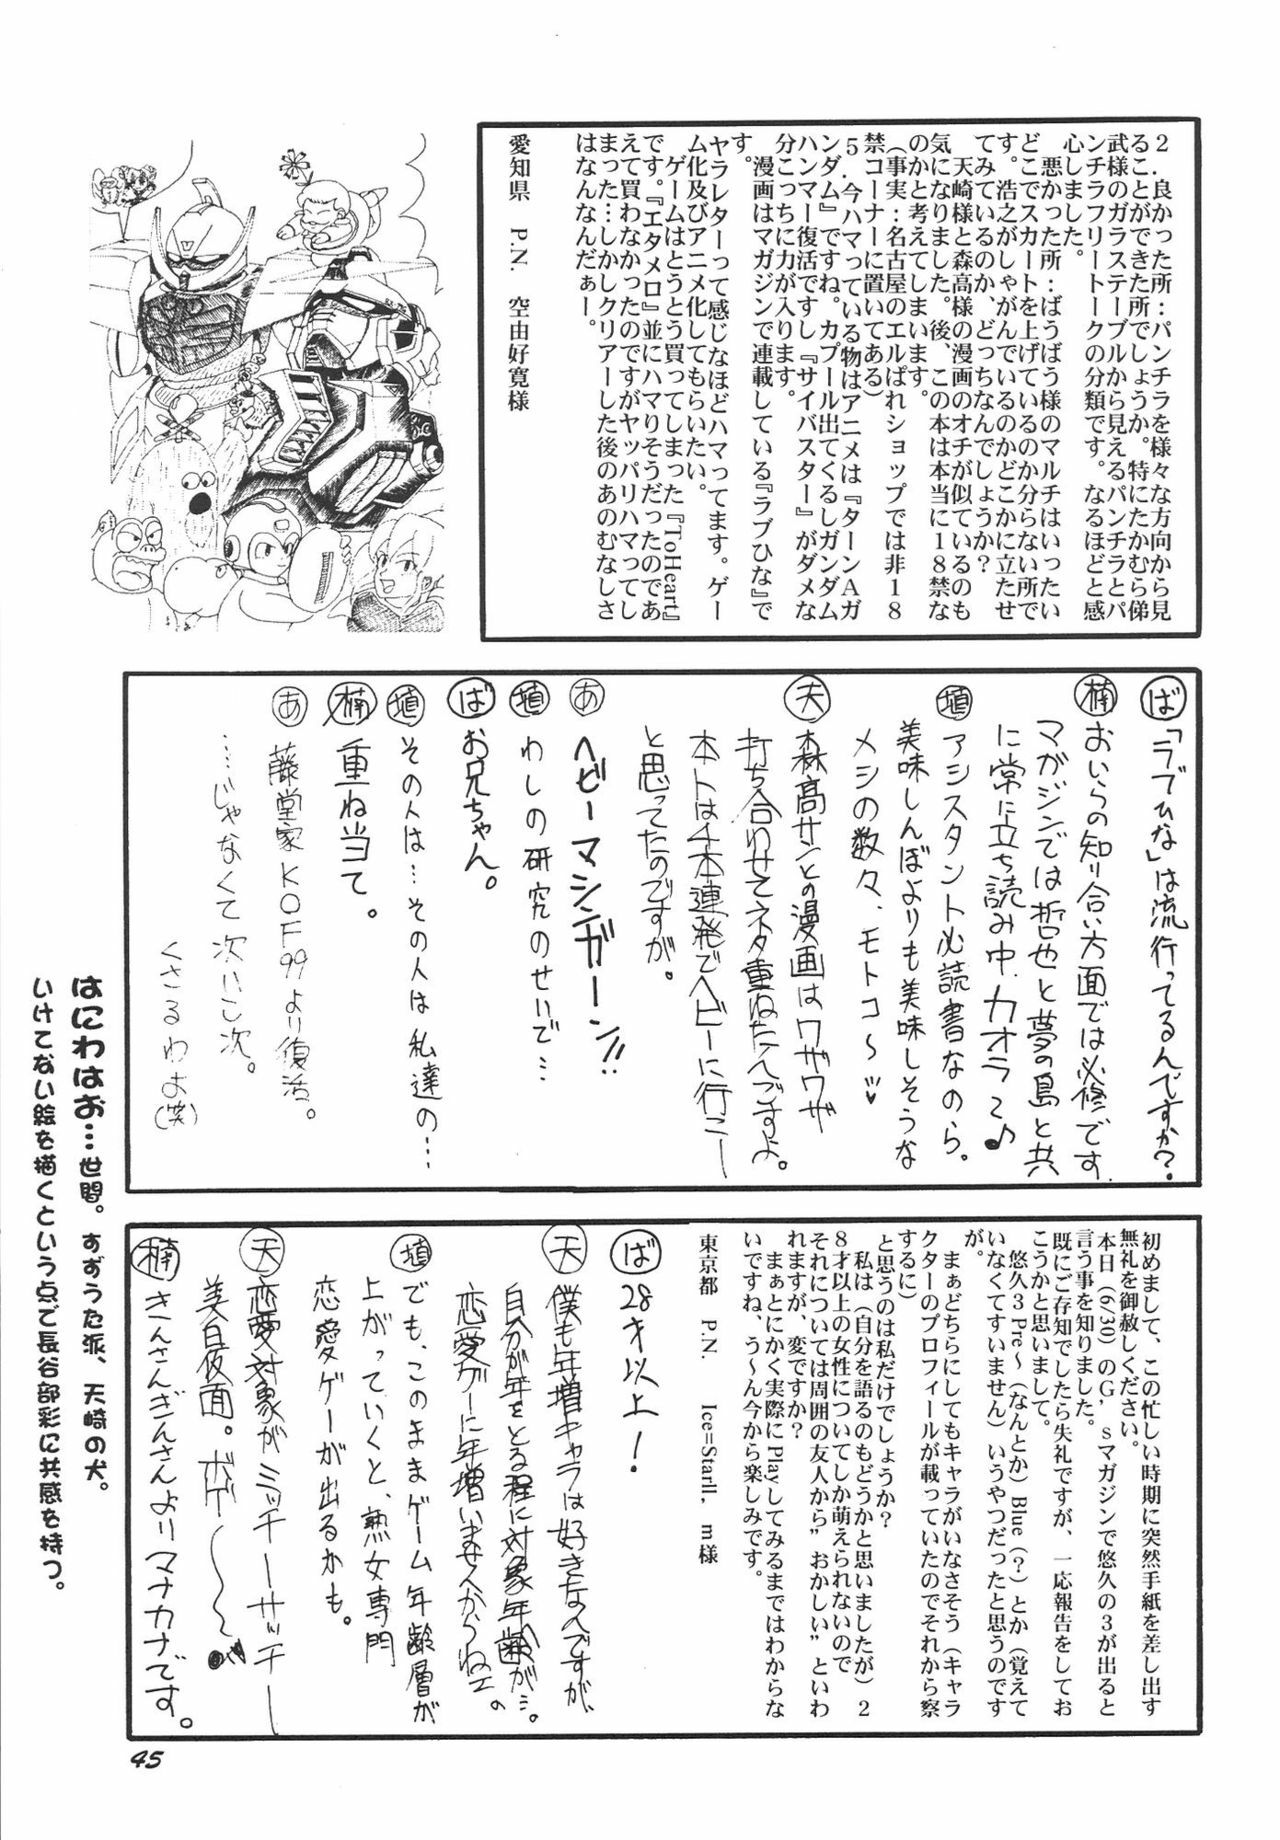 2．良かった所：パンチラを様々な方向から見
ることができた所でしょうか。特にたかむら俤
武様のガラステーブルから見えるパンチラとパ
ンチラフリートークの分類です。なるほどと感
心しました。
悪かった所：ばうばう様のマルチはいったい
どこでスカートを上げているのか分らない所で
す。浩之がしゃがんでいるのかどこかに立たせ
てみているのか、どっちなんでしょうか？
天崎様と森高様の漫画のオチが似ているのも
気になりました。後、この本は本当に18禁な
のかと考えてしまいます。
（事実：名古屋のエルぱれショップでは非18
禁コーナーに置いてある）
5．今ハマっている物はアニメは『ターンAガ
ンダム』ですね。カプール出てくるしガンダム
ハンマー復活ですし『サイバスター』がダメな
分こっちに力が入ります。
漫画はマガジンで連載している『ラブひな』で
す。
ヤラレターって感じなほどハマってます。ゲー
ム化及びアニメ化してもらいたい。
ゲームはとうとう買ってしまった『ToHeart』
です。『エタメロ』並にハマりそうだったのであ
えて買わなかったのですがヤッパリハマってし
まった…しかしクリアーした後のあのむなしさ
はなんなんだぁー。
愛知県　P.N.　空由好寛様
ば「ラブひな」は流行ってるんですか？
楠 おいらの知り合い方面では必修です
マガジンでは哲也と夢の島と共
に常に立ち読み中。カオラ～♪
埴 アシスタント必読書なのら。
美味しんぼよりも美味しそうな
メシの数々、モトコ～♥
天 森高サンとの漫画はワザワザ
打ち合わせてネタ重ねたんですよ。
本トは千本連発でヘビーに行こー
と思ってたのですが。
あ ヘビーマシンガーン!!
埴 わしの研究のせいで…
ば お兄ちゃん。
埴 その人は…その人は私達の…
楠 重ね当て。
あ 藤堂家KOF99より復活。
…じゃなくて次いこ次。
くさるわよ(笑)
初めまして、この忙しい時期に突然手紙を差し出す
無礼を御赦しください。
本日（6/30）のG'sマガジンで悠久の3が出ると
言う事を知りました。
既にご存知でしたら失礼ですが、一応報告をしてお
こうかと思いまして。
悠久3 Pre～（なんとか）Blue（？）とか（覚えて
いなくてすいません）いうやつだったと思うのです
が。
まぁどちらにしてもキャラがいなさそう（キャラ
クターのプロフィールが載っていたのでそれから察
するに）
と思うのは私だけでしょうか？
私は（自分を語るのもどうかと思いましたが）2
8才以上の女性についてしか萌えられないので
それについては周囲の友人から"おかしい"といわ
れますが、変ですか？
まぁとにかく実際にPlayしてみるまではわからな
いですね、う～ん今から楽しみです。
東京都　P.N.　Ice=Starll, m様
ば 28才以上！
天 僕も年増キャラは好きなんですが、
自分が年をとる程に対象年齢が…。
恋愛ゲーに年増いませんからねェ。
埴 でも、このままゲーム年齢層が
上がっていくと、熟女専門
恋愛ゲーが出るかも。
天 恋愛対象がミッチーサッチー
美白仮面。
楠 きんさんぎんさんよりマナカナです。
はにわはお…世間。すずうた派、天崎の犬。
いけてない絵を描くという点で長谷部彩に共感を持つ。
45